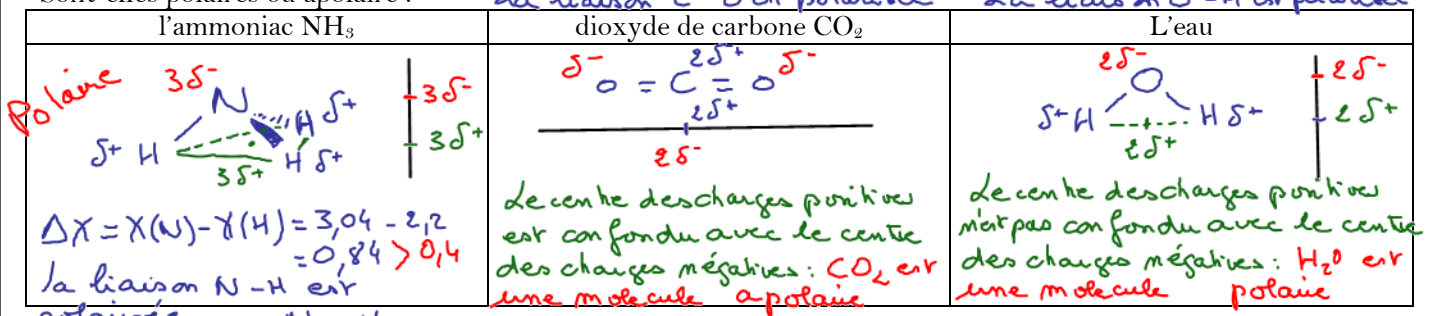 l'ammoniac NH₃
dioxyde de carbone CO₂
L'eau
Polaire
3δ⁻
N
δ⁺ H
H δ⁺
H δ⁺
3δ⁺
3δ⁻
3δ⁺
ΔX = X(N)-X(H) = 3,04 - 2,2
= 0,84 > 0,4
la liaison N-H est
2δ⁺
δ⁻ O = C = O δ⁻
2δ⁺
2δ⁻
Le centre des charges positives
est confondu avec le centre
des charges négatives : CO₂ est
une molécule apolaire
2δ⁻
O
δ⁺ H H δ⁺
2δ⁺
2δ⁻
2δ⁺
Le centre des charges positives
n'est pas confondu avec le centre
des charges négatives : H₂O est
une molécule polaire